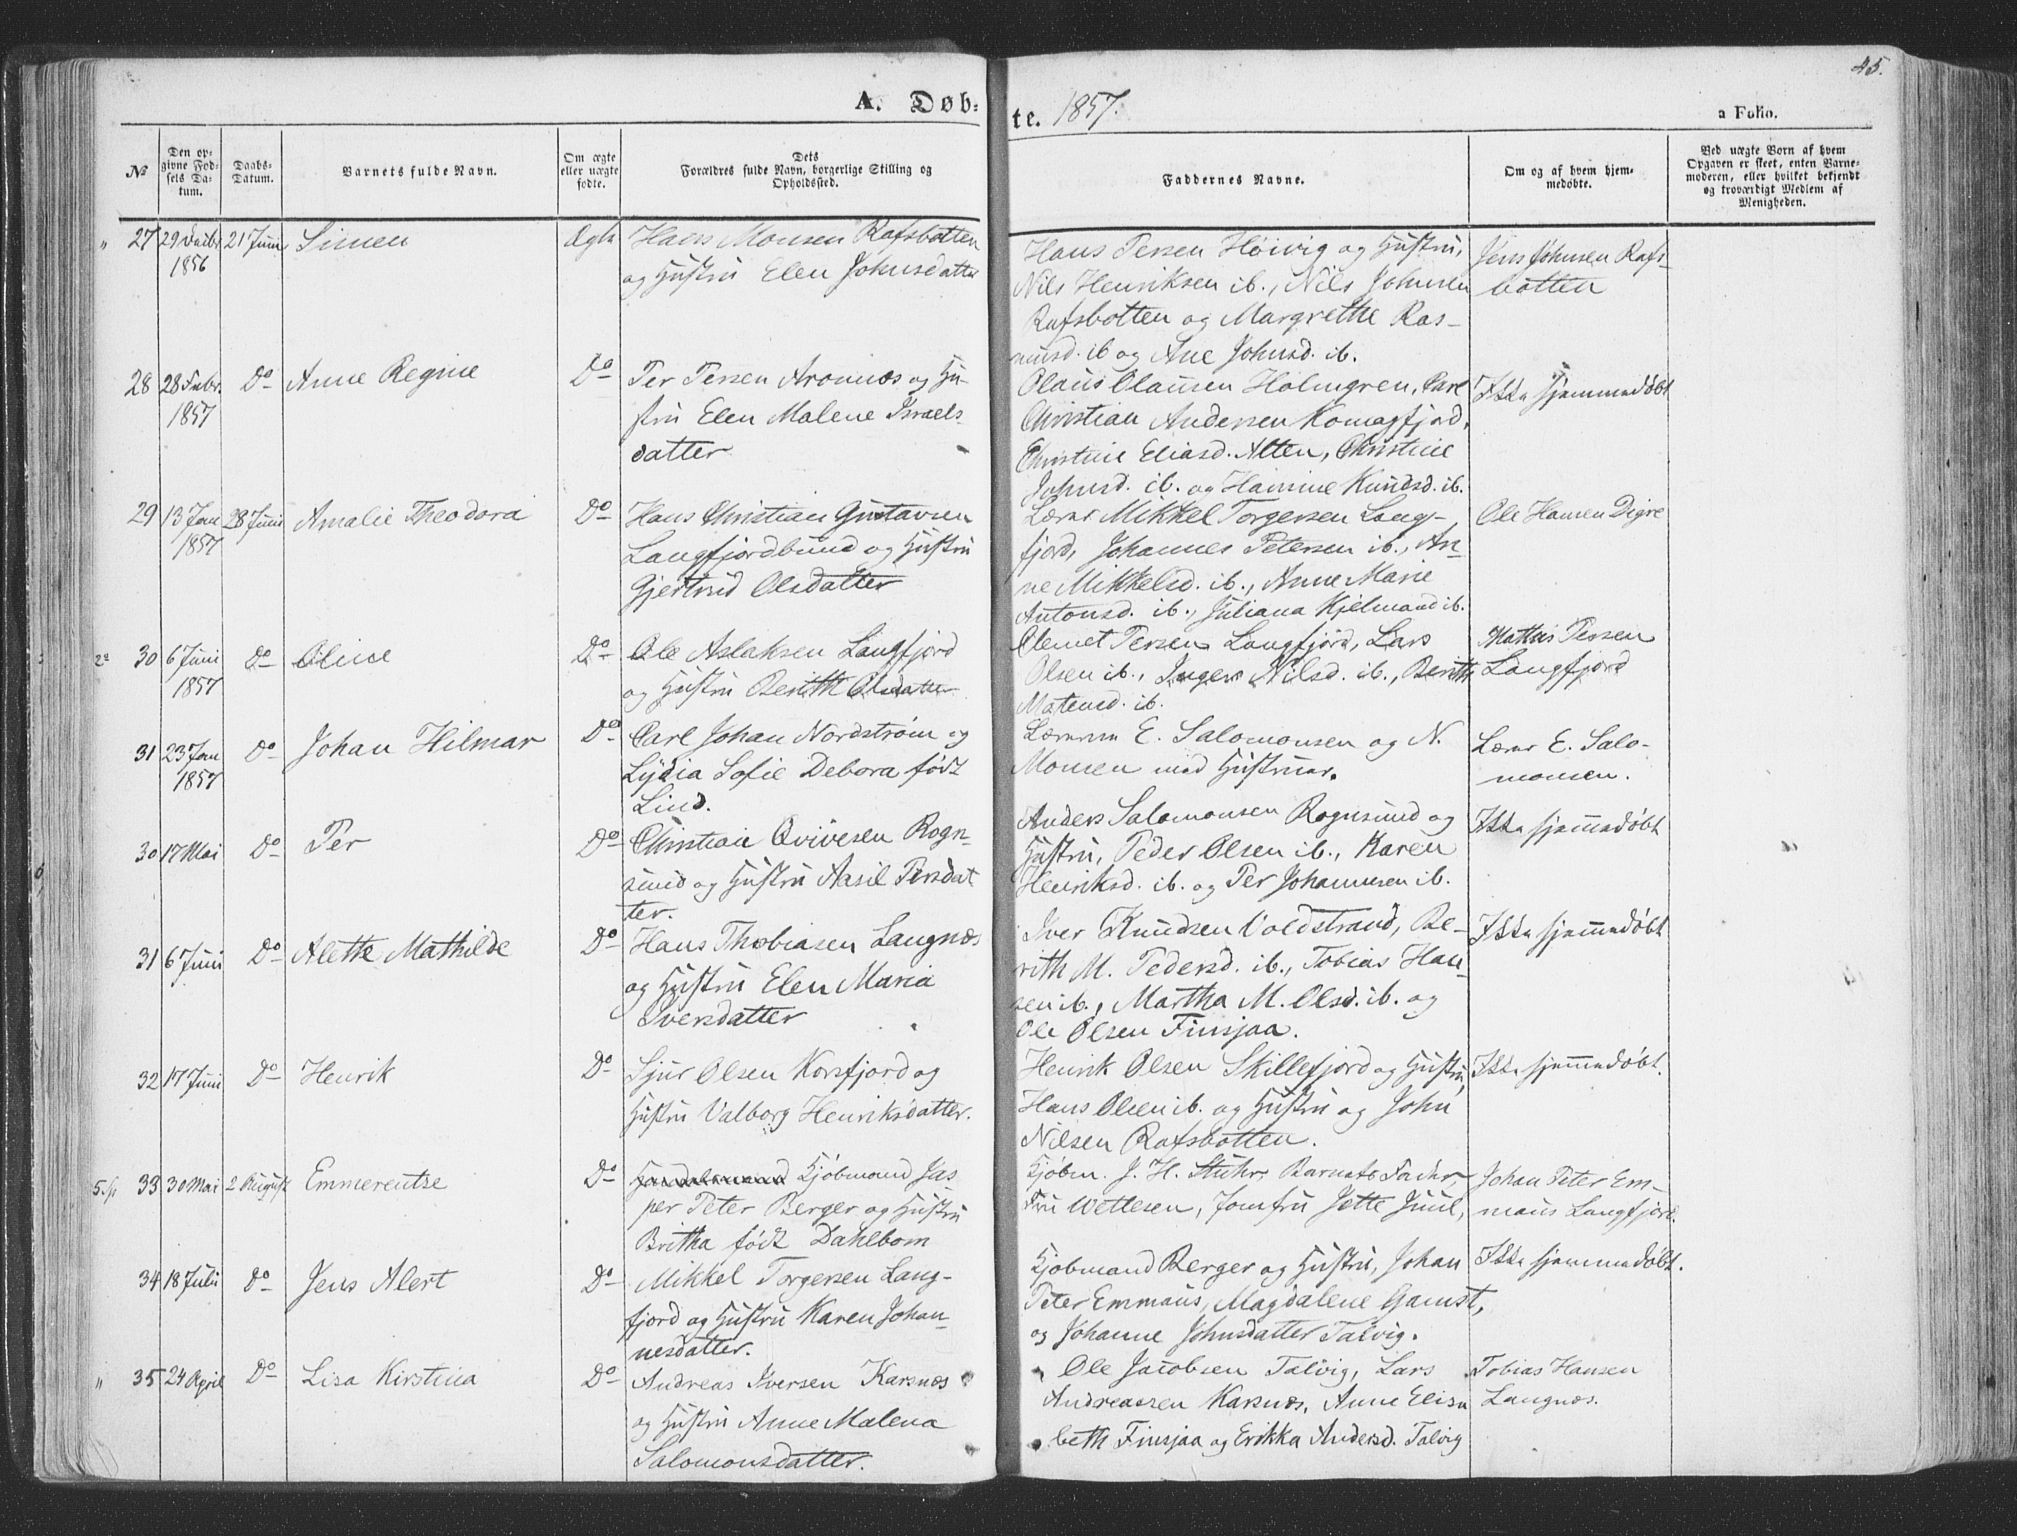 45.
A. Døb-
te. 1857.
a Folio.
No
Den op-
givne Fød-
sels Da-
tum.
Daabs-
Datum.
Barnets fulde Navn.
Om ægte
eller uægte
fødte.
Dets
Forældres fulde Navn, borgerlige Stilling og
Opholdssted.
Faddernes Navne.
Om og af hvem hjem-
medøbte.
Ved uægte Born af hvem
Opgaven er skeet, enten Barne-
moderen, eller hvilket bekjendt
og troværdigt Medlem af
Menigheden.
" 27 29 Decbr 1856
21 Juni
Simen
Ægte
Hans Monsen Rafsbotten
og Hustru Elen Johnsdatter
Hans Persen Høivig og Hustru,
Nils Henriksen ib., Nils Johnsen
Rafsbotten og Margrethe Ras-
musd. ib og Ane Johnsd. ib.
Jens Johnsen Rafs-
botten
28 28 Febr. 1857
Do
Anne Regine
Do
Per Persen Aronnæs og Hu-
stru Elen Malene Israels-
datter
Olaus Olausen Holmgren, Carl
Christian Andersen Komagfjord,
Christine Eliasd. Alten, Christine
Johnsd. ib. og Hansine Knudsd. ib.
Ikke hjemmedøbt
29 13 Jan 1857
28 Juni
Amalie Theodora
Do
Hans Christian Gustavsen
Langfjordbund og Hustru
Gjertrud Olsdatter
Lærer Mikkel Torgersen Lang-
fjord, Johannes Petersen ib., An-
ne Mikkelsd. ib., Anne Marie
Antonsd. ib., Juliana Kjelmand ib.
Ole Hansen Digre
2a 30 6 Juni 1857
Do
Oline
Do
Ole Aslaksen Langfjord
og Hustru Berith Olsdatter
Clemet Persen Langfjord, Lars
Olsen ib., Inger Nilsd. ib., Berith
Matensd. ib.
Mathis Persen
Langfjord
31 23 Jan 1857
Do
Johan Hilmar
Do
Carl Johan Nordstrøm og
Lydia Sofie Debora født
Lind.
Lærerne E. Salomonsen og N.
Monsen med Hustruer.
Lærer E. Salo-
monsen.
30 17 Mai
Do
Per
Do
Christian Qvivesen Rogn-
sund og Hustru Aasil Persdat
ter.
Anders Salomonsen Rognsund og
Hustru, Peder Olsen ib., Karen
Henriksd. ib. og Per Johannesen ib.
Ikke hjemmedøbt
31 6 Juni
Do
Alette Mathilde
Do
Hans Thobiasen Langnæs
og Hustru Elen Maria
Iversdatter
Iver Knudsen Voldstrand, Be-
rith M. Pedersd. ib., Tobias Han-
sen ib., Martha M. Olsd. ib. og
Ole Olsen Finsjaa.
Ikke hjemmedøbt
32 17 Juni
Do
Henrik
Do
Sjur Olsen Korsfjord og
Hustru Valborg Henriksdatter.
Henrik Olsen Skillefjord og Hustru,
Hans Olsen ib. og Hustru og John
Nilsen Rafsbotten.
Ikke hjemmedøbt.
5. Sp 33 30 Mai
2 August
Emmerentse
Do
Handelsmand Kjøbmand Jas
per Peter Berger og Hustru
Britha født Dahlbom
Kjøbm. J. H. Stuhr, Barnets Fader,
Fru Wetlesen, Jomfru Jette Juul,
Johan Peter Em-
maus Langfjord.
34 18 Juli
Do
Jens Alert
Do
Mikkel Torgersen Lang-
fjord og Hustru Karen Johan-
nesdatter.
Kjøbmand Berger og Hustru, Johan
Peter Emmaus, Magdalene Gamst,
og Johanne Johnsdatter Talvig.
Ikke hjemmedøbt.
" 35 24 April
Do
Lisa Kirstina
Do
Andreas Iversen Karsnæs
og Hustru Anne Malena
Salomonsdatter.
Ole Jacobsen Talvig, Lars
Andreassen Karsnæs, Anne Elisa
beth Finsjaa og Erikka Andersd. Talvig
Tobias Hansen
Langnæs.